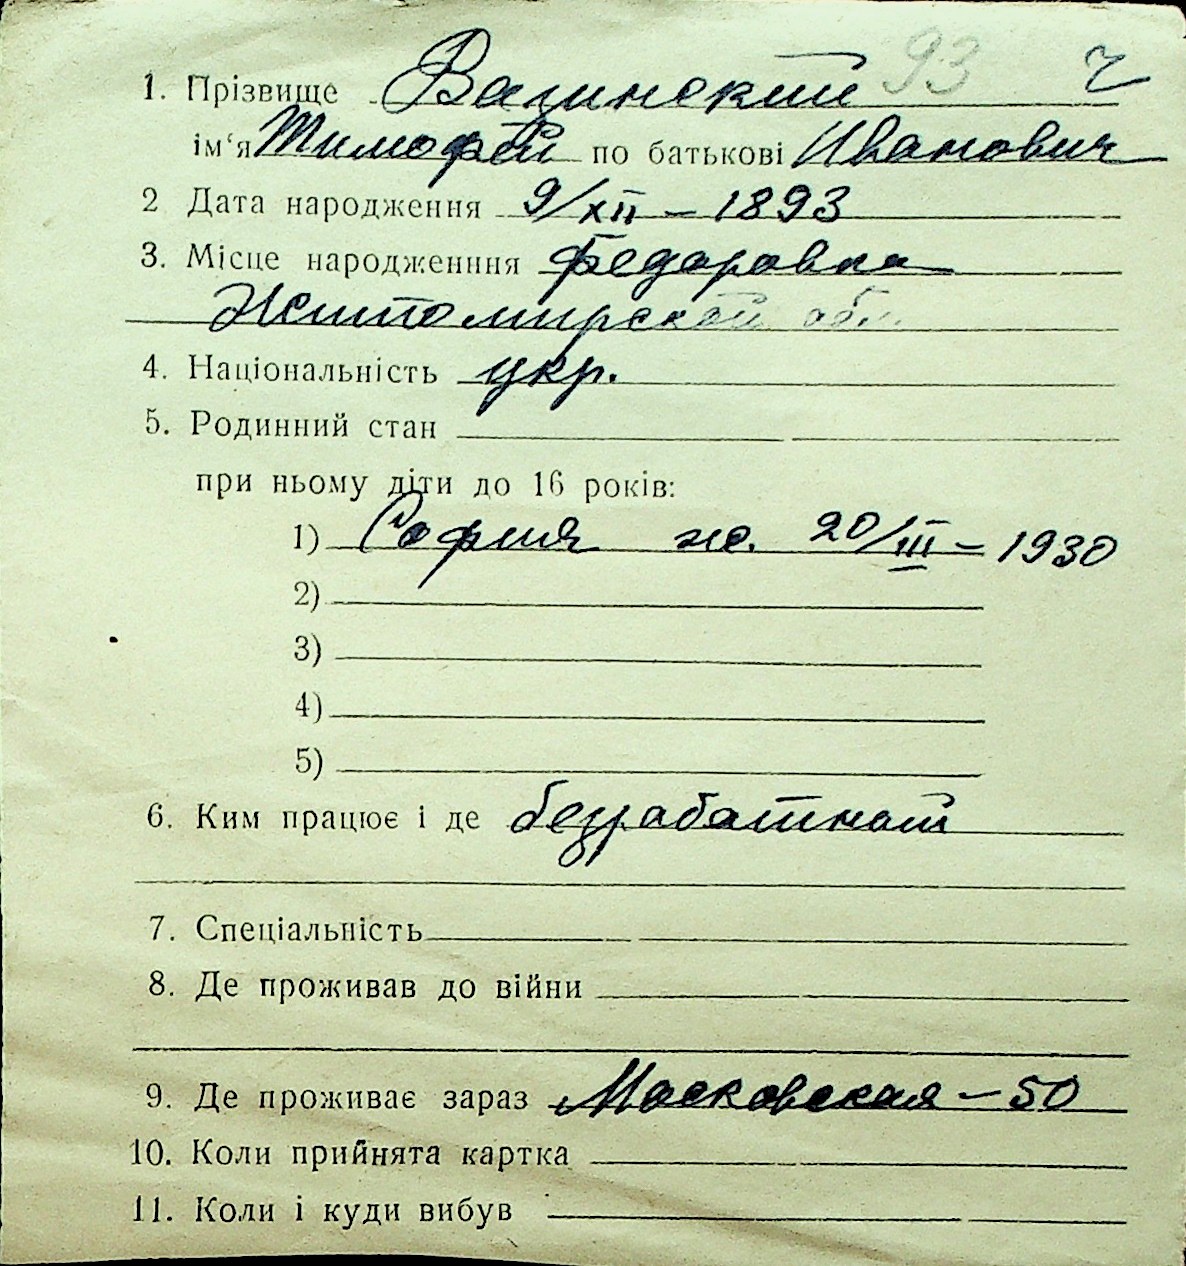 1. Прізвище Вагинский 93 г
ім'я Тимофей по батькові Иванович
2 Дата народження 9/XII – 1893
3. Місце народженння Федоровка
Житомирской обл.
4. Національність укр.
5. Родинний стан
при ньому діти до 16 років:
1) София ж. 20/III – 1930
2)
3)
4)
5)
6. Ким працює і де безработный
7. Спеціальність
8. Де проживав до війни
9. Де проживає зараз Московская – 50
10. Коли прийнята картка
11. Коли і куди вибув